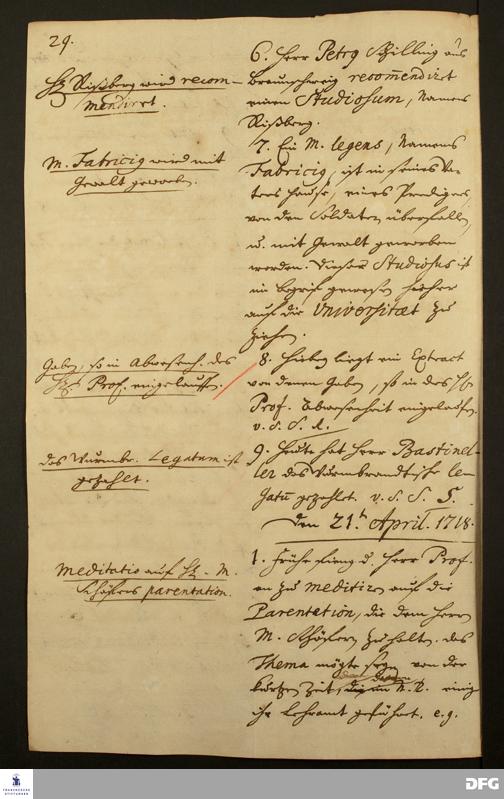 29.
H. Rißberg wird recom-
mendiret.
M. Fabriciꝰ wird mit
Gewalt geworben.
Gaben, so in Abwesenh. des
H. Prof. eingelauffen.
das Wurmbr. Legatum ist
gezahlt.
Meditatio auf H. M.
Schäfers parentation.
6. Herr Petry Schilling aus
Braunschweig recommendirt
einen Studiosum, Namens
Rißberg.
7. Ein M. legens, Namens
Fabriciꝰ, ist in seines Va-
ters Hause, eines Predigers
von den Soldaten überfallen,
u. mit Gewalt geworben
worden. Dieser Studiosus ist
im Begrif gewesen hieher
auf die Universitaet zu
ziehen.
8. Hiebey liegt ein Extract
von denen Gaben, so in des H.
Prof. Abwesenheit eingelaufen.
v. S. S. 1.
9. Heute hat Herr Bastinel-
ler das Wurmbrandtische le-
gatũ gezahlt. v. S. S. 5.
Den 21.t. April. 1718.
1. Frühe fieng d. Herr Prof.
an zu meditiren auf die
Parentation, die dem Herrn
M. Schäfern zu halten. das
Thema mögte seyn von der
kurtzen Zeit, die im N. T. einige
ihr Lehramt geführet. e. g.
FRANCKESCHE
STIFTUNGEN
DFG